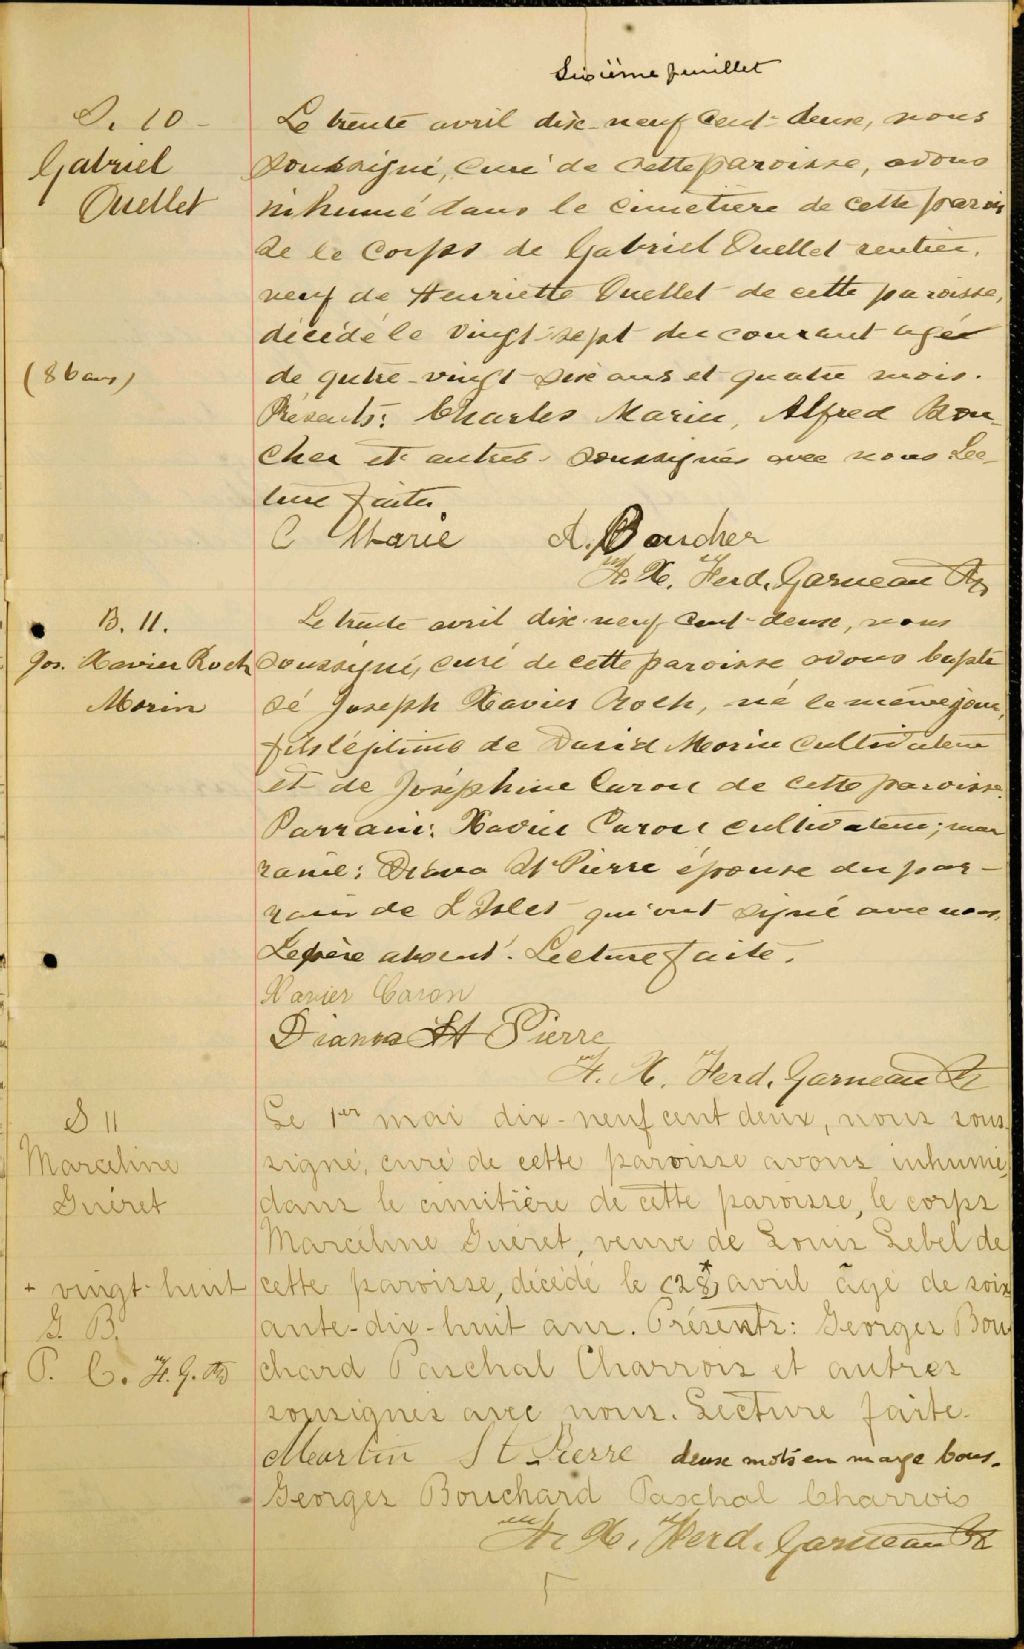 Sixième feuillet
S. 10 -
Gabriel
Ouellet
Le trente avril dix-neuf cent-deux, nous
soussigné, curé de cette paroisse, avons
inhumé dans le cimetière de cette parois
se le corps de Gabriel Ouellet rentier,
veuf de Henriette Ouellet de cette paroisse,
décédé le vingt-sept du courant agée
(86 ans)
de qutre-vingt-six ans et quatre mois.
Présents: Charles Marie, Alfred Bou-
cher et autres soussignés avec nous Lec-
ture faite.
C Marie A. Boucher
F. X. Ferd. Garneau Ptr
B. 11.
Jos. Xavier Roch
Morin
Le trente avril dix-neuf cent-deux, nous
soussigné, curé de cette paroisse avons bapti
sé Joseph Xavier Roch, né le même jour,
fils légitime de David Morin cultivateur
et de Joséphine Caron de cette paroisse.
Parrain: Xavier Caron cultivateur; mar
raine: Diana St Pierre épouse du par-
rain de L'Islet qui ont signé avec nous.
Le père absent. Lecture faite.
Xavier Caron
Dianna St Pierre
F. X. Ferd. Garneau Ptr
S 11
Marceline
Guéret
Le 1er mai dix-neuf cent deux, nous sous-
signé, curé de cette paroisse avons inhumé,
dans le cimitière de cette paroisse, le corps
Marcéline Guéret, veuve de Louis Lebel de
cette paroisse, décédé le (28)* avril âgé de soix
+ vingt-huit
G. B.
P. C. F. G. Ptr
ante-dix-huit ans. Présents: Georges Bou
chard Paschal Charrois et autres
sousignés avec nous. Lecture faite.
Martin St Pierre deux mots en marge bons.
Georges Bouchard Paschal Charrois
F. X. Ferd. Garneau Ptr